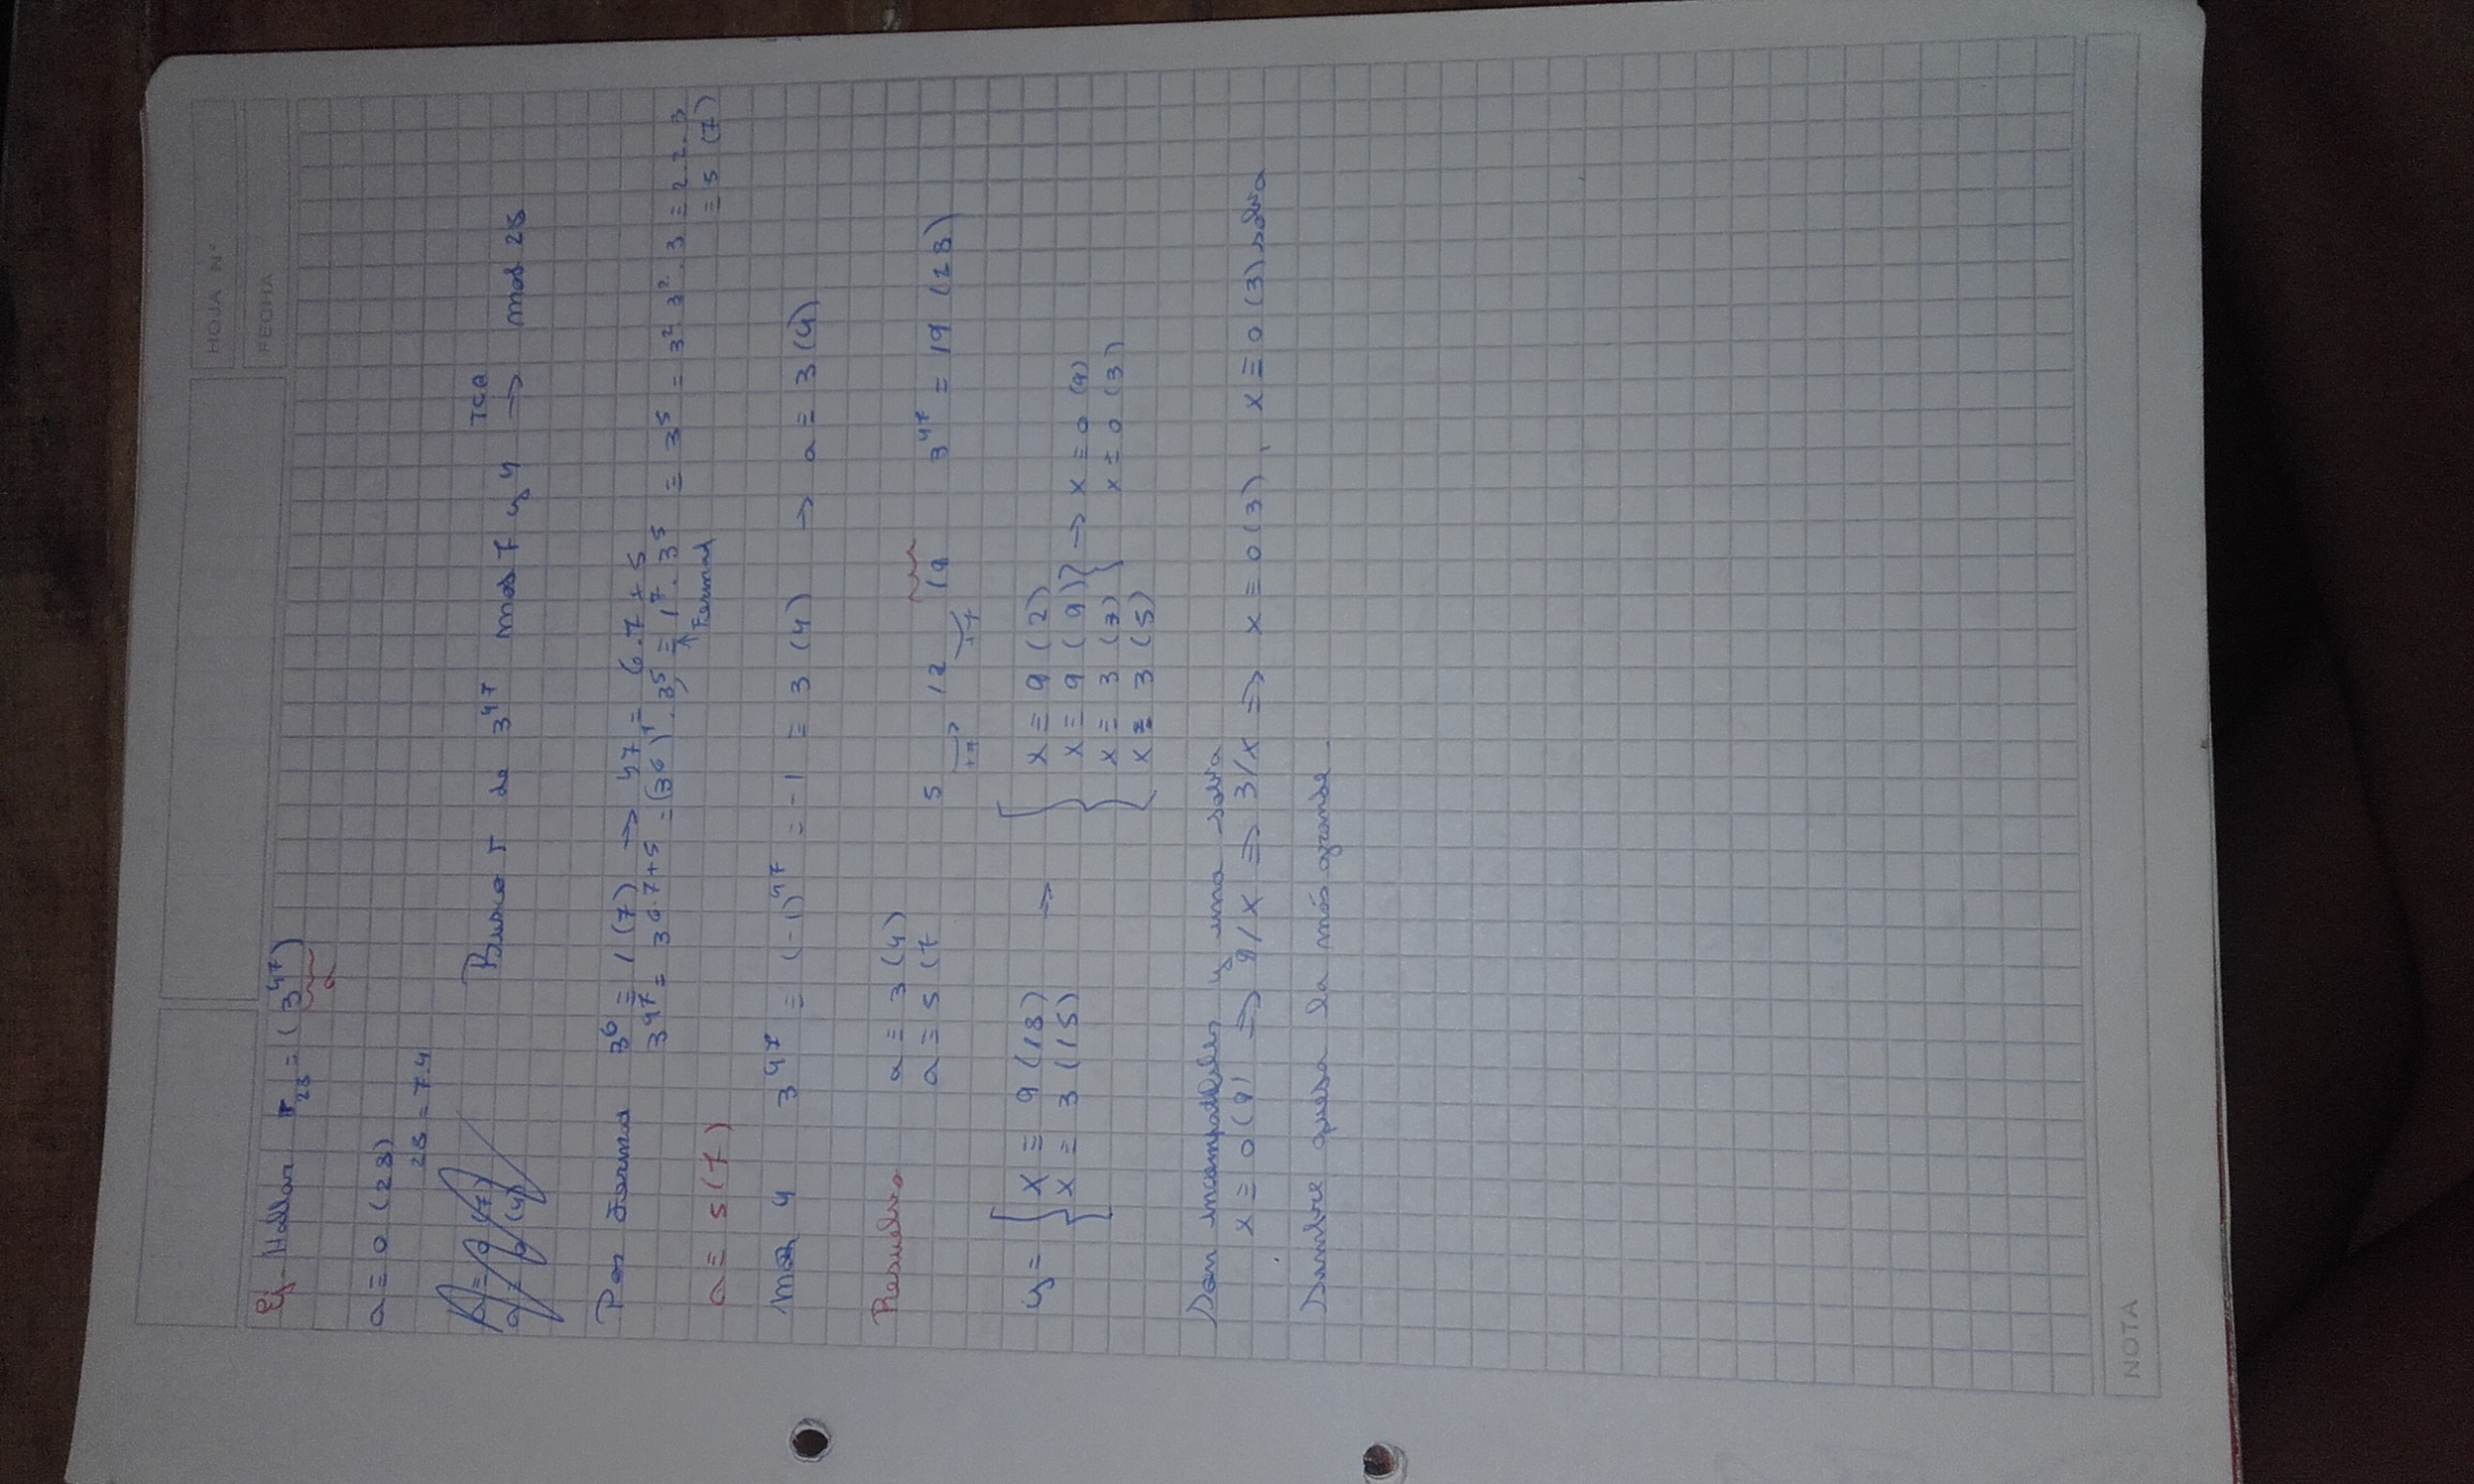 HOJA N°
FECHA
Ej- Hallar r₂₈ = (3⁴⁷)
a
a ≡ 0 (28)
28 = 7.4
a ≡ 0 (7)
a ≡ 0 (4)
Busco r de 3⁴⁷ mod 7 y 4 → mod 28
TCR
Por Fermat 3⁶ ≡ 1 (7) → 47 = 6.7 + 5
3⁴⁷ = 3⁶·⁷⁺⁵ = (3⁶)⁷ . 3⁵ ≡ 1⁷ . 3⁵ ≡ 3⁵ = 3² 3² . 3 ≡ 2.2.3
↑ Fermat
≡ 5 (7)
a ≡ 5 (7)
mod 4 3⁴⁷ ≡ (-1)⁴⁷ = -1 ≡ 3 (4) → a ≡ 3 (4)
Resuelvo a ≡ 3 (4)
a ≡ 5 (7 5 12 19 3⁴⁷ = 19 (28)
+7 +7
y = { x ≡ 9 (18) → { x ≡ 9 (2)
x ≡ 3 (15) x ≡ 9 (9) } → x ≡ 0 (9)
x ≡ 3 (3) } x ≡ 0 (3)
x ≡ 3 (5)
Son incompatibles y una sobra
x ≡ 0 (9) ⇒ 9/x ⇒ 3/x ⇒ x ≡ 0 (3), x ≡ 0 (3) sobra
queda la más grande.
NOTA